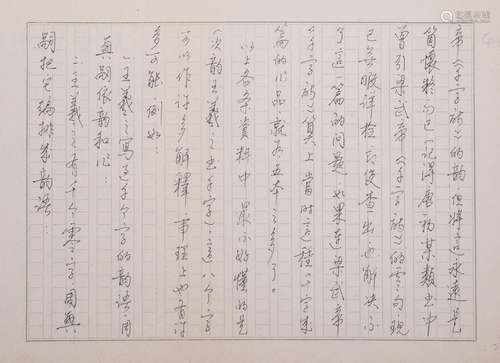 帝《千字文》的韵，但将这永远是
简怀於句已，记得唐初某类书中
曾引梁武帝《千字文》的零句，现
已无暇详检，后查出也解决不
了这一篇的问题。如果连梁武帝
《千字文》算上，当时这种《千字文》
篇的作品就有五本之多了。
以上各条资料中最不好懂的是
「次韵王羲之书千字」，这八个字
可以作许多解释，事理上也有许
多可能，例如：
一、王羲之写过千个字的韵语，周兴
兴嗣依韵和作
二、王羲之有千个零字，周兴
嗣把它编排成韵语：